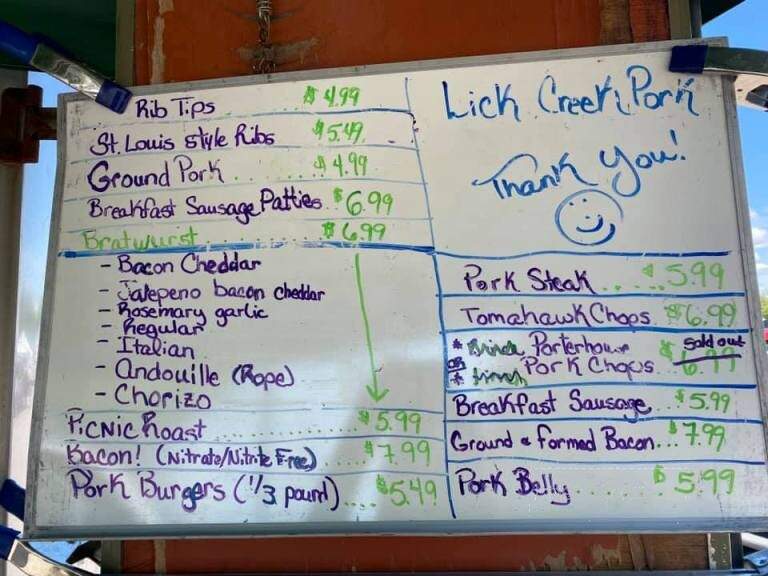 Rib Tips $4.99
St. Louis style Ribs $5.49
Ground Pork ..... $4.99
Breakfast Sausage Patties.. $6.99
Bratwurst ........... $6.99
- Bacon Cheddar
- Jalepeno bacon cheddar
- Rosemary garlic
- Regular
- Italian
- Andouille (Rope)
- Chorizo
Picnic Roast .......... $5.99
Bacon! (Nitrate/Nitrite Free) ..... $7.99
Pork Burgers (1/3 pound).... $5.49
Lick Creek Pork
Thank You!
Pork Steak ..... $5.99
Tomahawk Chops $6.99
* Porterhouse sold out
OR
* Pork Chops $6.99
Breakfast Sausage... $5.99
Ground & formed Bacon... $7.99
Pork Belly ........ $5.99